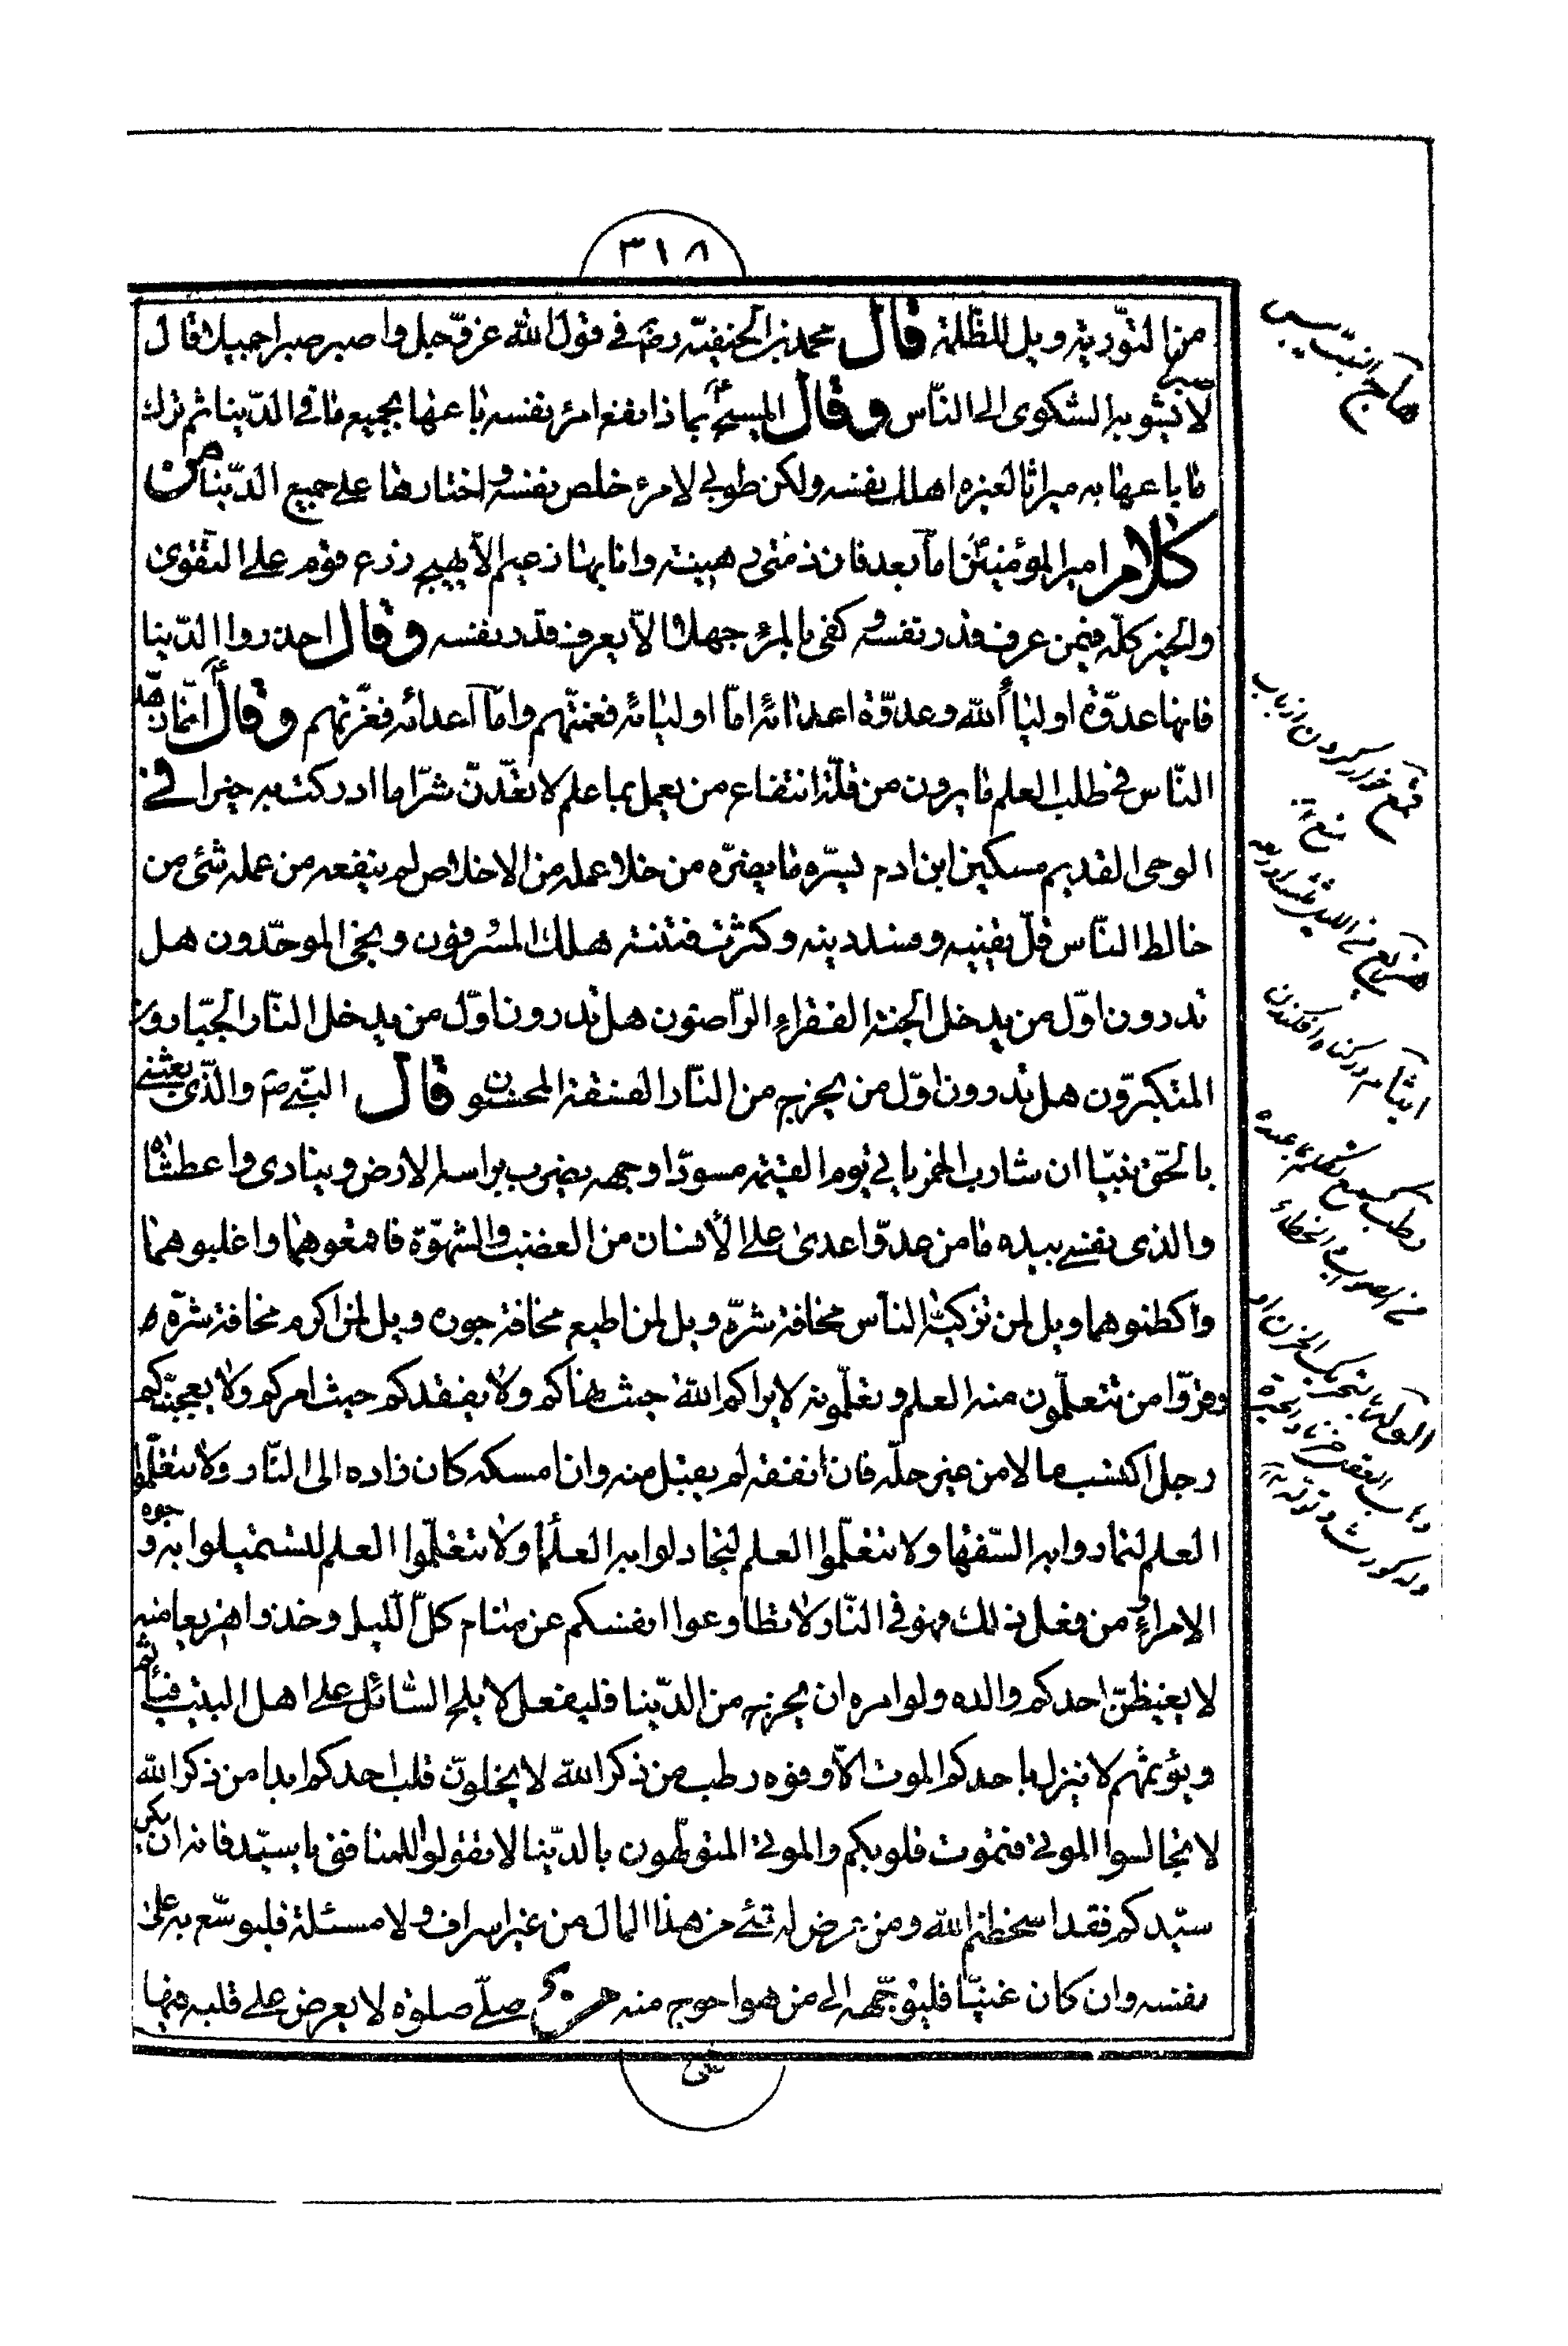 ٣١٨
من التورية ويل للظلمة قال محمد بن الحنفية رض في قول الله عز وجل واصبر صبرا جميلا قال
لا تشوبه الشكوى الى الناس وقال المسيح بما ذا نفع امرء نفسه باعها بجميع ما في الدينا ثم ترك
ما باعها به ميراثا لغيره اهلك نفسه ولكن طوبى لامرء خلص نفسه واختارها على جميع الدينا من
كلام امير المؤمنين اما بعد فان ذمتى رهينة وانا بها زعيم لا يهيج زرع قوم على التقوى
والخير كله فيمن عرف قدر نفسه و كفى بالمرء جهلا ان لا يعرف قدر نفسه وقال احذروا الدينا
فانها عدوة اولياء الله وعدوة اعدائه اما اوليائه فغمتهم واما اعدائه فغرتهم وقال انما زهد
الناس في طلب العلم ما يرون من قلة انتفاع من يعمل بما علم لا تعدن شرا ما ادركت به خيرا في
الوحى القديم مسكين ابن ادم يسره ما يضره من خلا عمله من الاخلاص لم ينفعه من عمله شئ من
خالط الناس قل يقينه وفسد دينه وكثرت فتنته هلك المسرفون ونجى الموحدون هل
تدرون اول من يدخل الجنة الفقراء الراضون هل تدرون اول من يدخل النار الجبارون
المتكبرون هل تدرون اول من يخرج من النار الفسقة المحسنون قال النبي ص والذى بعثنى
بالحق نبيا ان شارب الخمر ياتى يوم القيمة مسودا وجهه يضرب براسه الارض وينادى واعطشاه
والذى نفسى بيده ما من عدو اعدى على الانسان من الغضب والشهوة فاقمعوهما واغلبوهما
واكظموهما ويل لمن تزكيه الناس مخافة شره ويل لمن اطيع مخافة جوره ويل لمن اكرم مخافة شره
وقروا من تتعلمون منه العلم و تعلمونه لا يراكم الله حيث نهاكم ولا يفقدكم حيث امركم ولا يعجبنكم
رجل اكتسب مالا من غير حله فان انفقه لم يقبل منه وان امسكه كان زاده الى النار ولا تتعلموا
العلم لتماروا به السفها ولا تتعلموا العلم لتجادلوا به العلما ولا تتعلموا العلم لتستميلوا به وجوه
الامراء ومن فعل ذلك فهو في النار لا تطاوعوا انفسكم عن منام كل الليل وخذوا هزيعا منه
لا يغيظن احدكم والده ولو امره ان يخرج من الدينا فليفعل لا يلح السائل على اهل البيت فياثم
ويؤثمهم لا ينزل باحدكم الموت الا وفوه رطب من ذكر الله لا يخلون قلب احدكم ابدا من ذكر الله
لا تجالسوا الموتى فتموت قلوبكم والموتى المتولهون بالدينا لا تقولوا للمنافق يا سيد فانه ان يكن
سيدكم فقد اسخطتم الله ومن عرض له شئ من هذا المال من غير اسراف ولا مسئلة فليوسع به على
نفسه وان كان غنيا فليوجهه الى من هو احوج منه من صلى صلوة لا يعرض على قلبه فيها
شئ